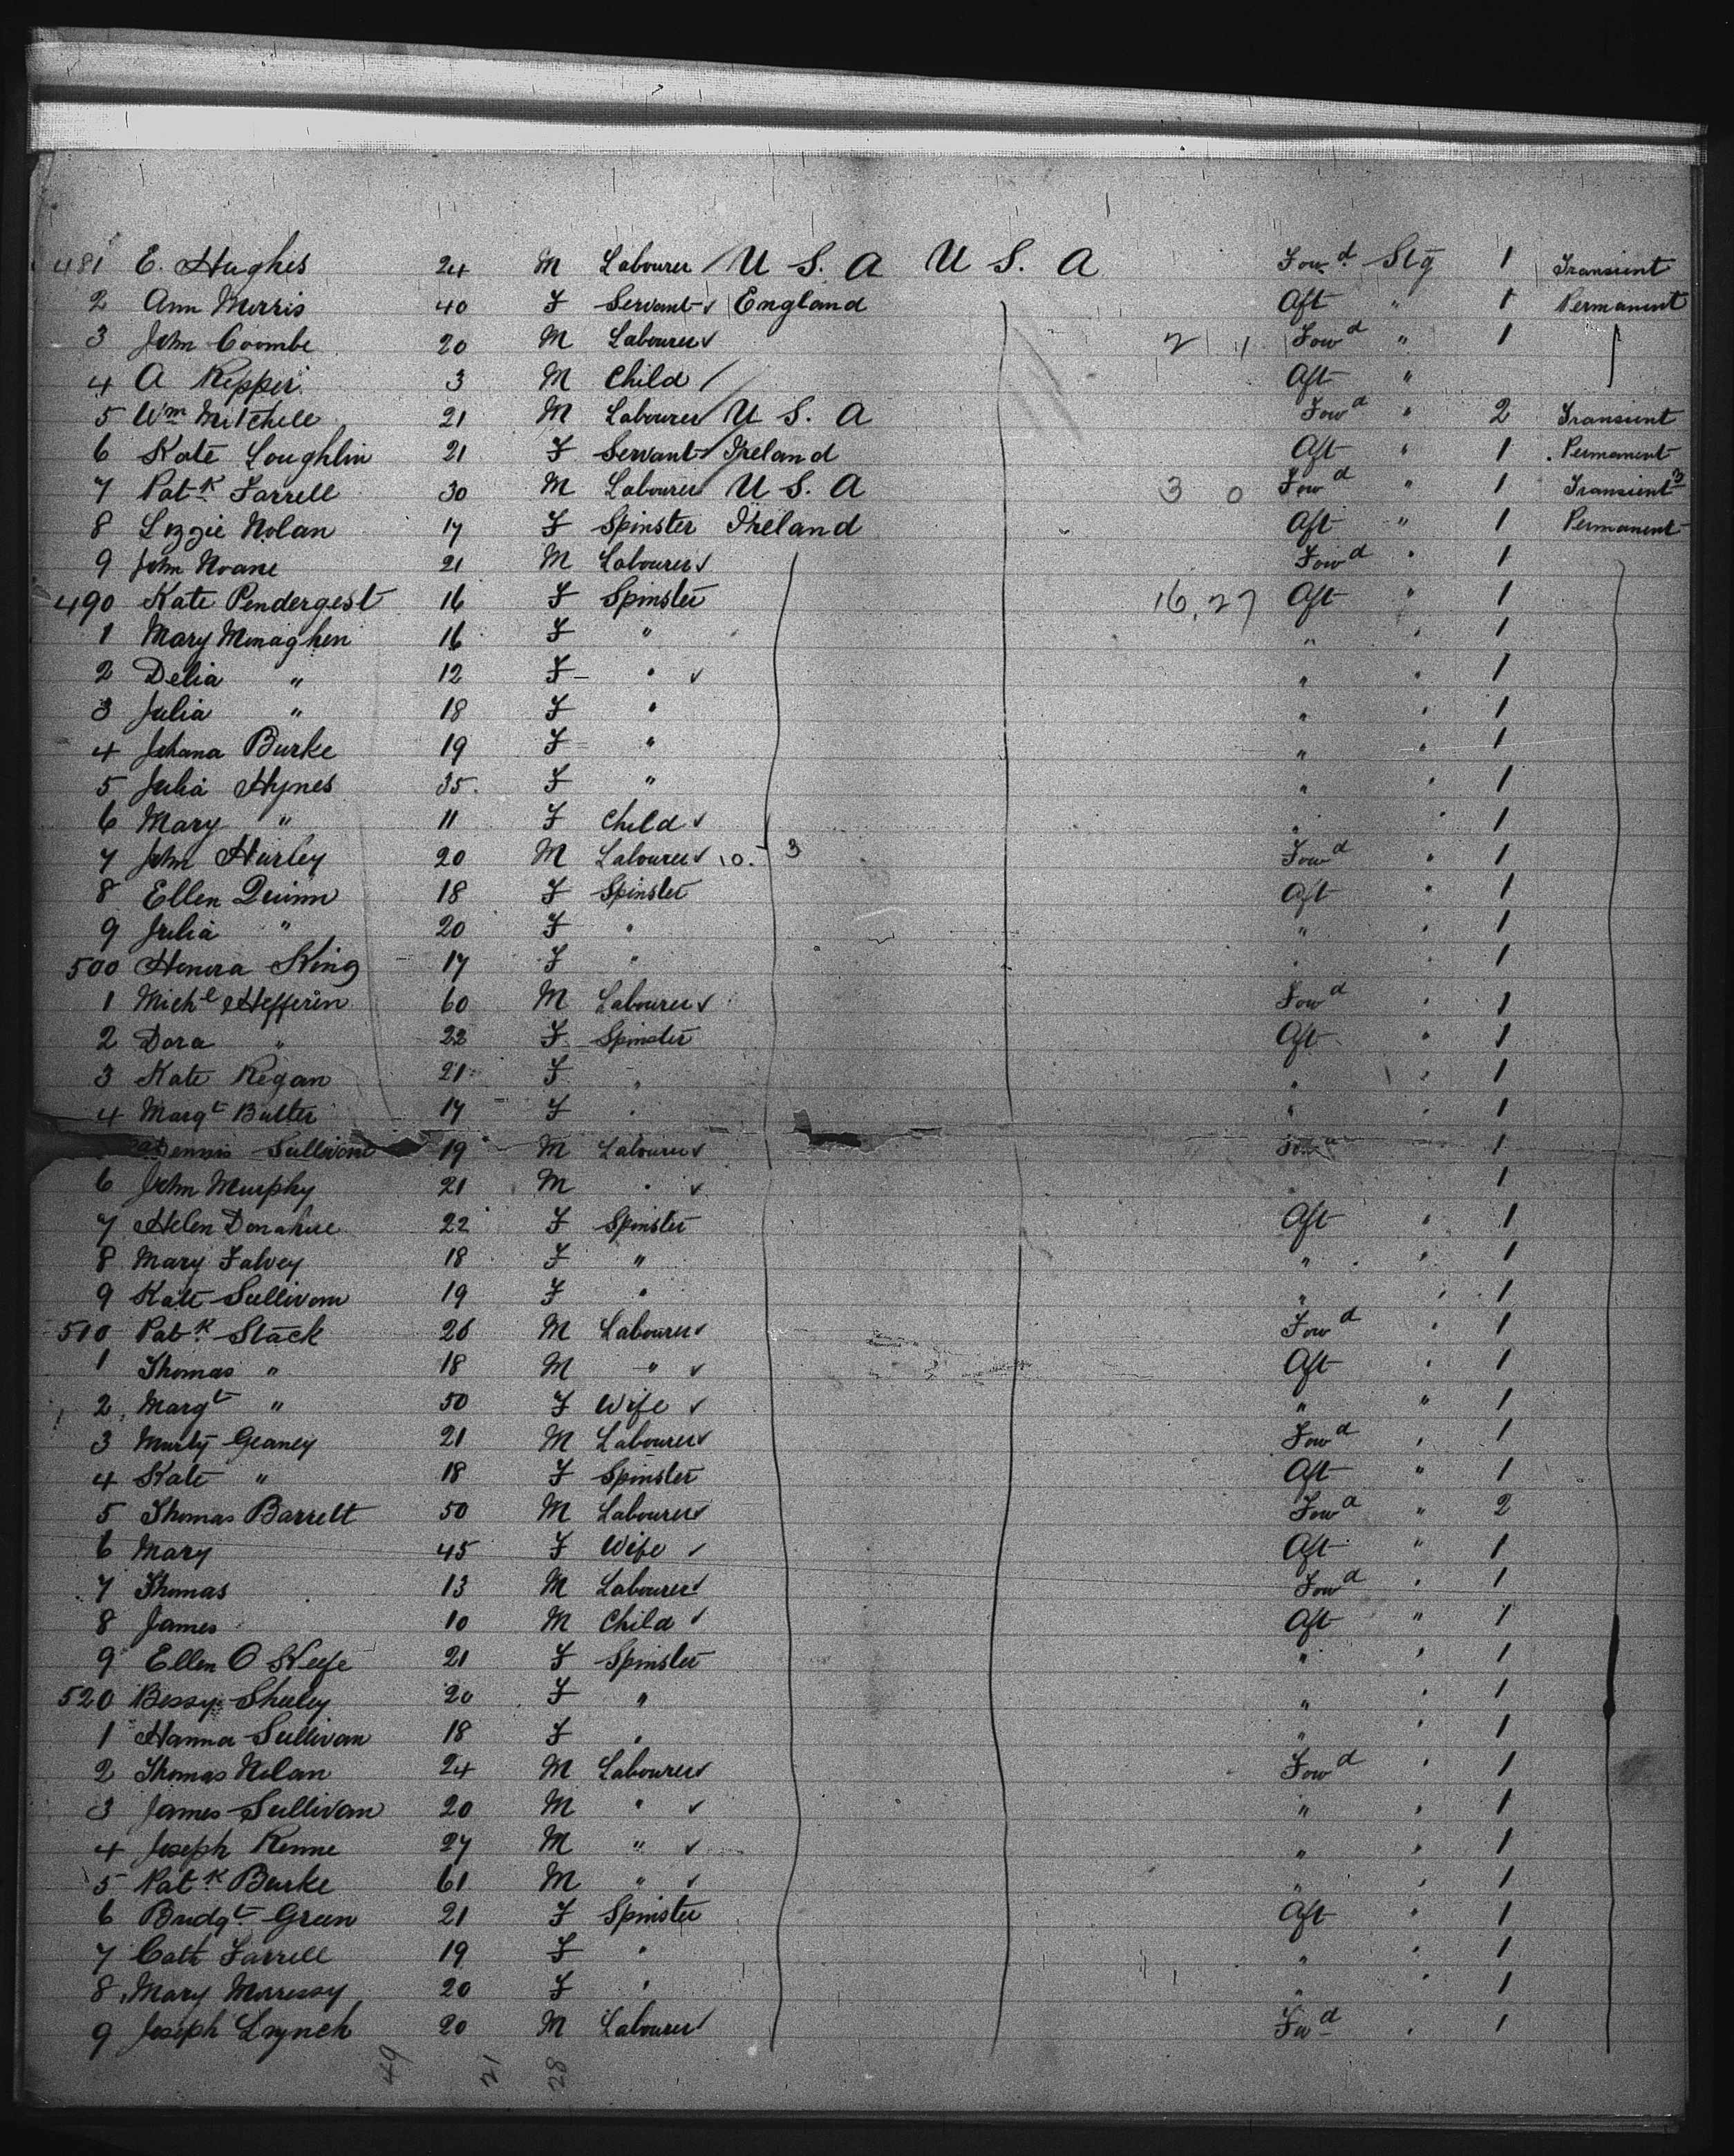 481 E. Hughes 24 M Labourer / U S. A U S. A Fowd Stg 1 Transient
2 Ann Morris 40 F Servant ✓ England Aft " 1 Permanent
3 John Coombe 20 M Labourer ✓ 2 1 Fowd " 1
4 A 3 M Child / Aft "
5 Wm Mitchell 21 M Labourer / U S. A Fowd " 2 Transient
6 Kate Loughlin 21 F Servant / Ireland Aft " 1 Permanent
7 Patk Farrell 30 M Labourer U S. A 3 0 Fowd " 1 Transient
8 Lizzie Nolan 17 F Spinster Ireland Aft " 1 Permanent
9 John 21 M Labourer ✓ Fowd " 1
490 Kate Pendergest 16 F Spinster 16,27 Aft " 1
1 Mary Monaghen 16 F " " " 1
2 Delia " 12 F " ✓ " " 1
3 Julia " 18 F " " " 1
4 Johana Burke 19 F " " " 1
5 Julia Hynes 35 F " " " 1
6 Mary " 11 F Child ✓ " " 1
7 John Hurley 20 M Labourer ✓ 10. 3 Fowd " 1
8 Ellen Quinn 18 F Spinster Aft " 1
9 Julia " 20 F " " " 1
500 Honora King 17 F " " " 1
1 Michl Hefferin 60 M Labourer ✓ Fowd " 1
2 Dora " 22 F Spinster Aft " 1
3 Kate Regan 21 F " " " 1
4 Margt Butler 17 F " " " 1
Dennis Sullivan 19 M Labourer ✓ 1
6 John Murphy 21 M " ✓ 1
7 Helen Donahue 22 F Spinster Aft " 1
8 Mary Falvey 18 F " " " 1
9 Kate Sullivan 19 F " " " 1
510 Patk Stack 26 M Labourer ✓ Fowd " 1
1 Thomas " 18 M " ✓ Aft " 1
2 Margt " 50 F Wife ✓ " " 1
3 Murty Geaney 21 M Labourer ✓ Fowd " 1
4 Kate " 18 F Spinster Aft " 1
5 Thomas Barrett 50 M Labourer ✓ Fowd " 2
6 Mary 45 F Wife ✓ Aft " 1
7 Thomas 13 M Labourer ✓ Fowd " 1
8 James 10 M Child ✓ Aft " 1
9 Ellen O Keefe 21 F Spinster " " 1
520 Bessy Sheeley 20 F " " " 1
1 Hanna Sullivan 18 F " " " 1
2 Thomas Nolan 24 M Labourer ✓ Fowd " 1
3 James Sullivan 20 M " ✓ " " 1
4 Joseph 27 M " ✓ " " 1
5 Patk Burke 61 M " ✓ " " 1
6 Bridgt Green 21 F Spinster Aft " 1
7 Cath Farrell 19 F " " " 1
8 Mary Morressy 20 F " " " 1
9 Joseph Lynch 20 M Labourer ✓ Fwd " 1
49 21 28